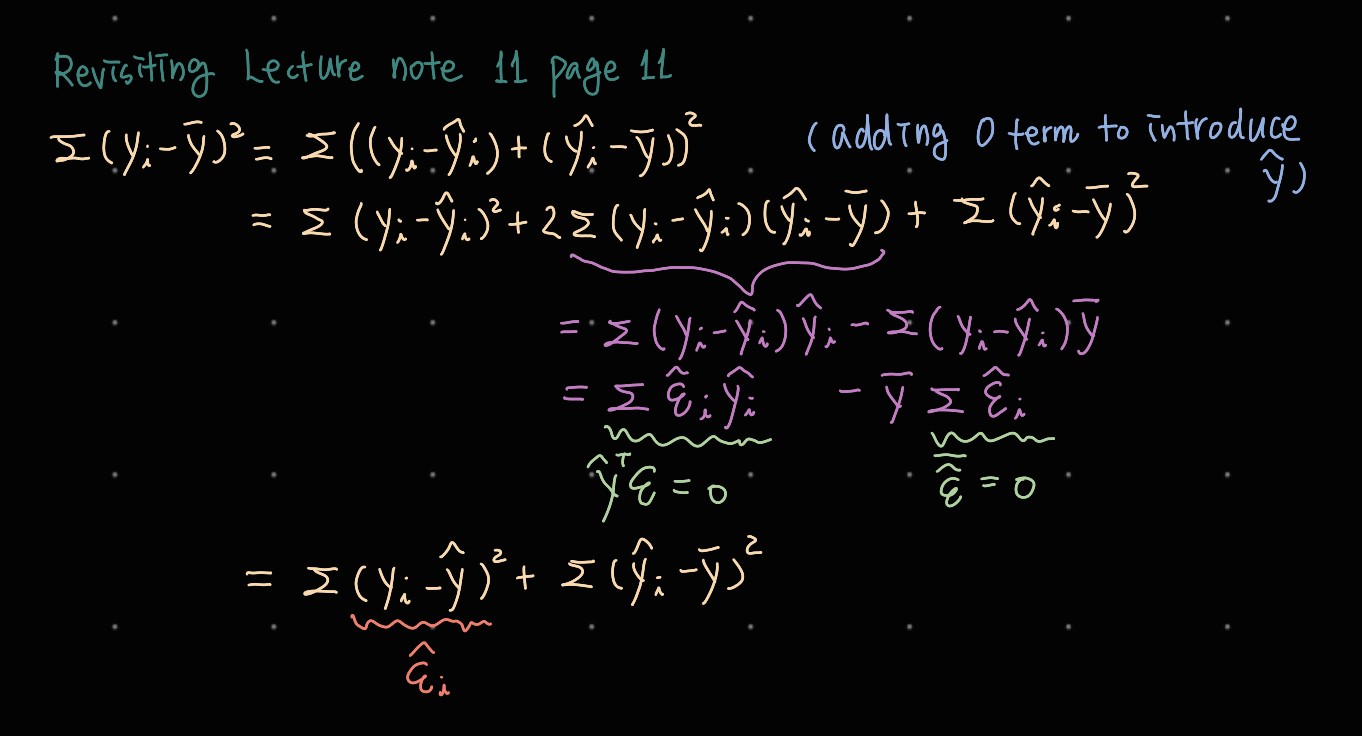 Revisiting Lecture note 11 page 11
Σ(yᵢ-ȳ)² = Σ((yᵢ-ŷᵢ)+(ŷᵢ-ȳ))² (adding 0 term to introduce
ŷ)
= Σ (yᵢ-ŷᵢ)² + 2Σ(yᵢ-ŷᵢ)(ŷᵢ-ȳ) + Σ(ŷᵢ-ȳ)²
= Σ(yᵢ-ŷᵢ)ŷᵢ - Σ(yᵢ-ŷᵢ)ȳ
= Σ ε̂ᵢŷᵢ - ȳ Σ ε̂ᵢ
ŷᵀε = 0 ε̂̄ = 0
= Σ(yᵢ-ŷ)² + Σ(ŷᵢ-ȳ)²
ε̂ᵢ